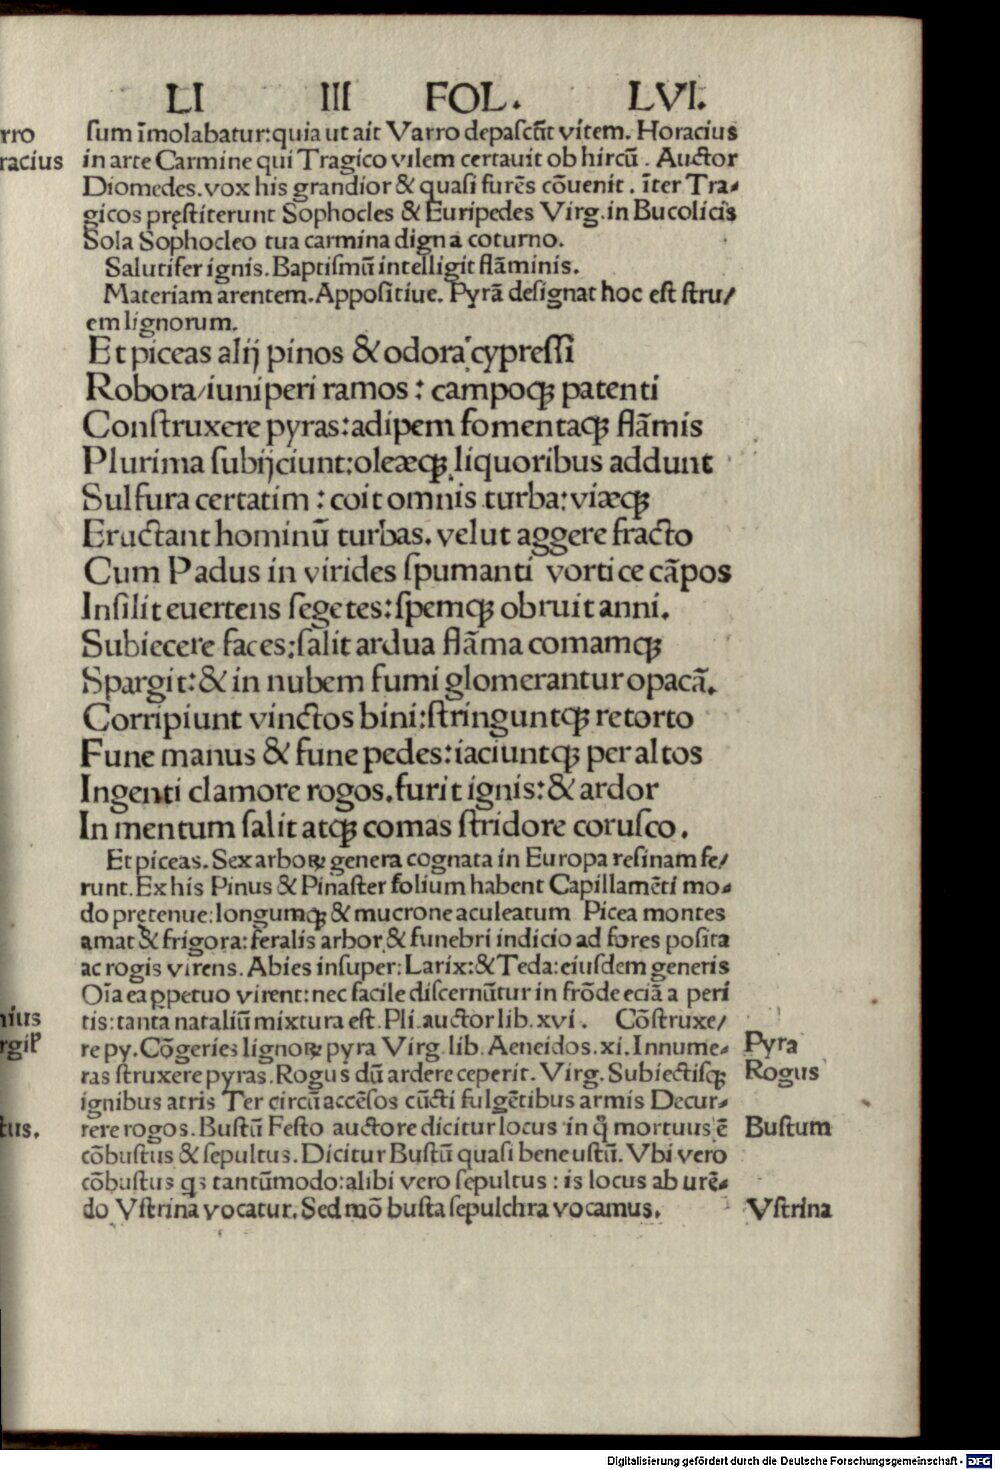 LI III FOL. LVI.
rro
racius
ſum īmolabatur:quia ut ait Varro depaſcūt vitem. Horacius
in arte Carmine qui Tragico vilem certauit ob hircū. Auctor
Diomedes. vox his grandior & quaſi furēs cōuenit. īter Tra-
gicos pręſtiterunt Sophocles & Euripedes Virg. in Bucolicis
Sola Sophocleo tua carmina digna coturno.
Salutifer ignis. Baptiſmū intelligit flāminis.
Materiam arentem. Appoſitiue. Pyrā deſignat hoc eſt ſtru/
em lignorum.
Et piceas alij pinos & odora cypreſſi
Robora/iuniperi ramos: campoqꝫ patenti
Conſtruxere pyras:adipem fomentaqꝫ flāmis
Plurima ſubijciunt:oleæqꝫ liquoribus addunt
Sulfura certatim: coit omnis turba: viæqꝫ
Eructant hominū turbas. velut aggere fracto
Cum Padus in virides ſpumanti vortice cāpos
Inſilit euertens ſegetes:ſpemqꝫ obruit anni.
Subiecere faces:ſalit ardua flāma comamqꝫ
Spargit:& in nubem fumi glomerantur opacā.
Corripiunt vinctos bini:ſtringuntqꝫ retorto
Fune manus & fune pedes:iaciuntqꝫ per altos
Ingenti clamore rogos. furit ignis:& ardor
In mentum ſalit atqꝫ comas ſtridore coruſco.
Et piceas. Sex arboꝝ genera cognata in Europa reſinam fe/
runt. Ex his Pinus & Pinaſter folium habent Capillamēti mo-
do prętenue:longumqꝫ & mucrone aculeatum Picea montes
amat & frigora: feralis arbor & funebri indicio ad fores poſita
ac rogis virens. Abies inſuper: Larix:& Teda: eiuſdem generis
Oīa ea ꝑpetuo virent: nec facile diſcernūtur in frōde eciā a peri
tis: tanta nataliū mixtura eſt. Pli. auctor lib. xvi. Cōſtruxe/
re py. Cōgeries lignoꝝ pyra Virg. lib. Aeneidos. xi. Innume-
ras ſtruxere pyras. Rogus dū ardere ceperit. Virg. Subiectiſqꝫ
ignibus atris Ter circū accēſos cūcti fulgētibus armis Decur-
rere rogos. Buſtū Feſto auctore dicitur locus in q̄ mortuus ē
cōbuſtus & ſepultus. Dicitur Buſtū quaſi bene uſtū. Vbi vero
cōbuſtus qs tantūmodo: alibi vero ſepultus: is locus ab urē-
do Vſtrina vocatur. Sed mō buſta ſepulchra vocamus.
nius
rgil'
tus.
Pyra
Rogus
Buſtum
Vſtrina
Digitalisierung gefördert durch die Deutsche Forschungsgemeinschaft - DFG